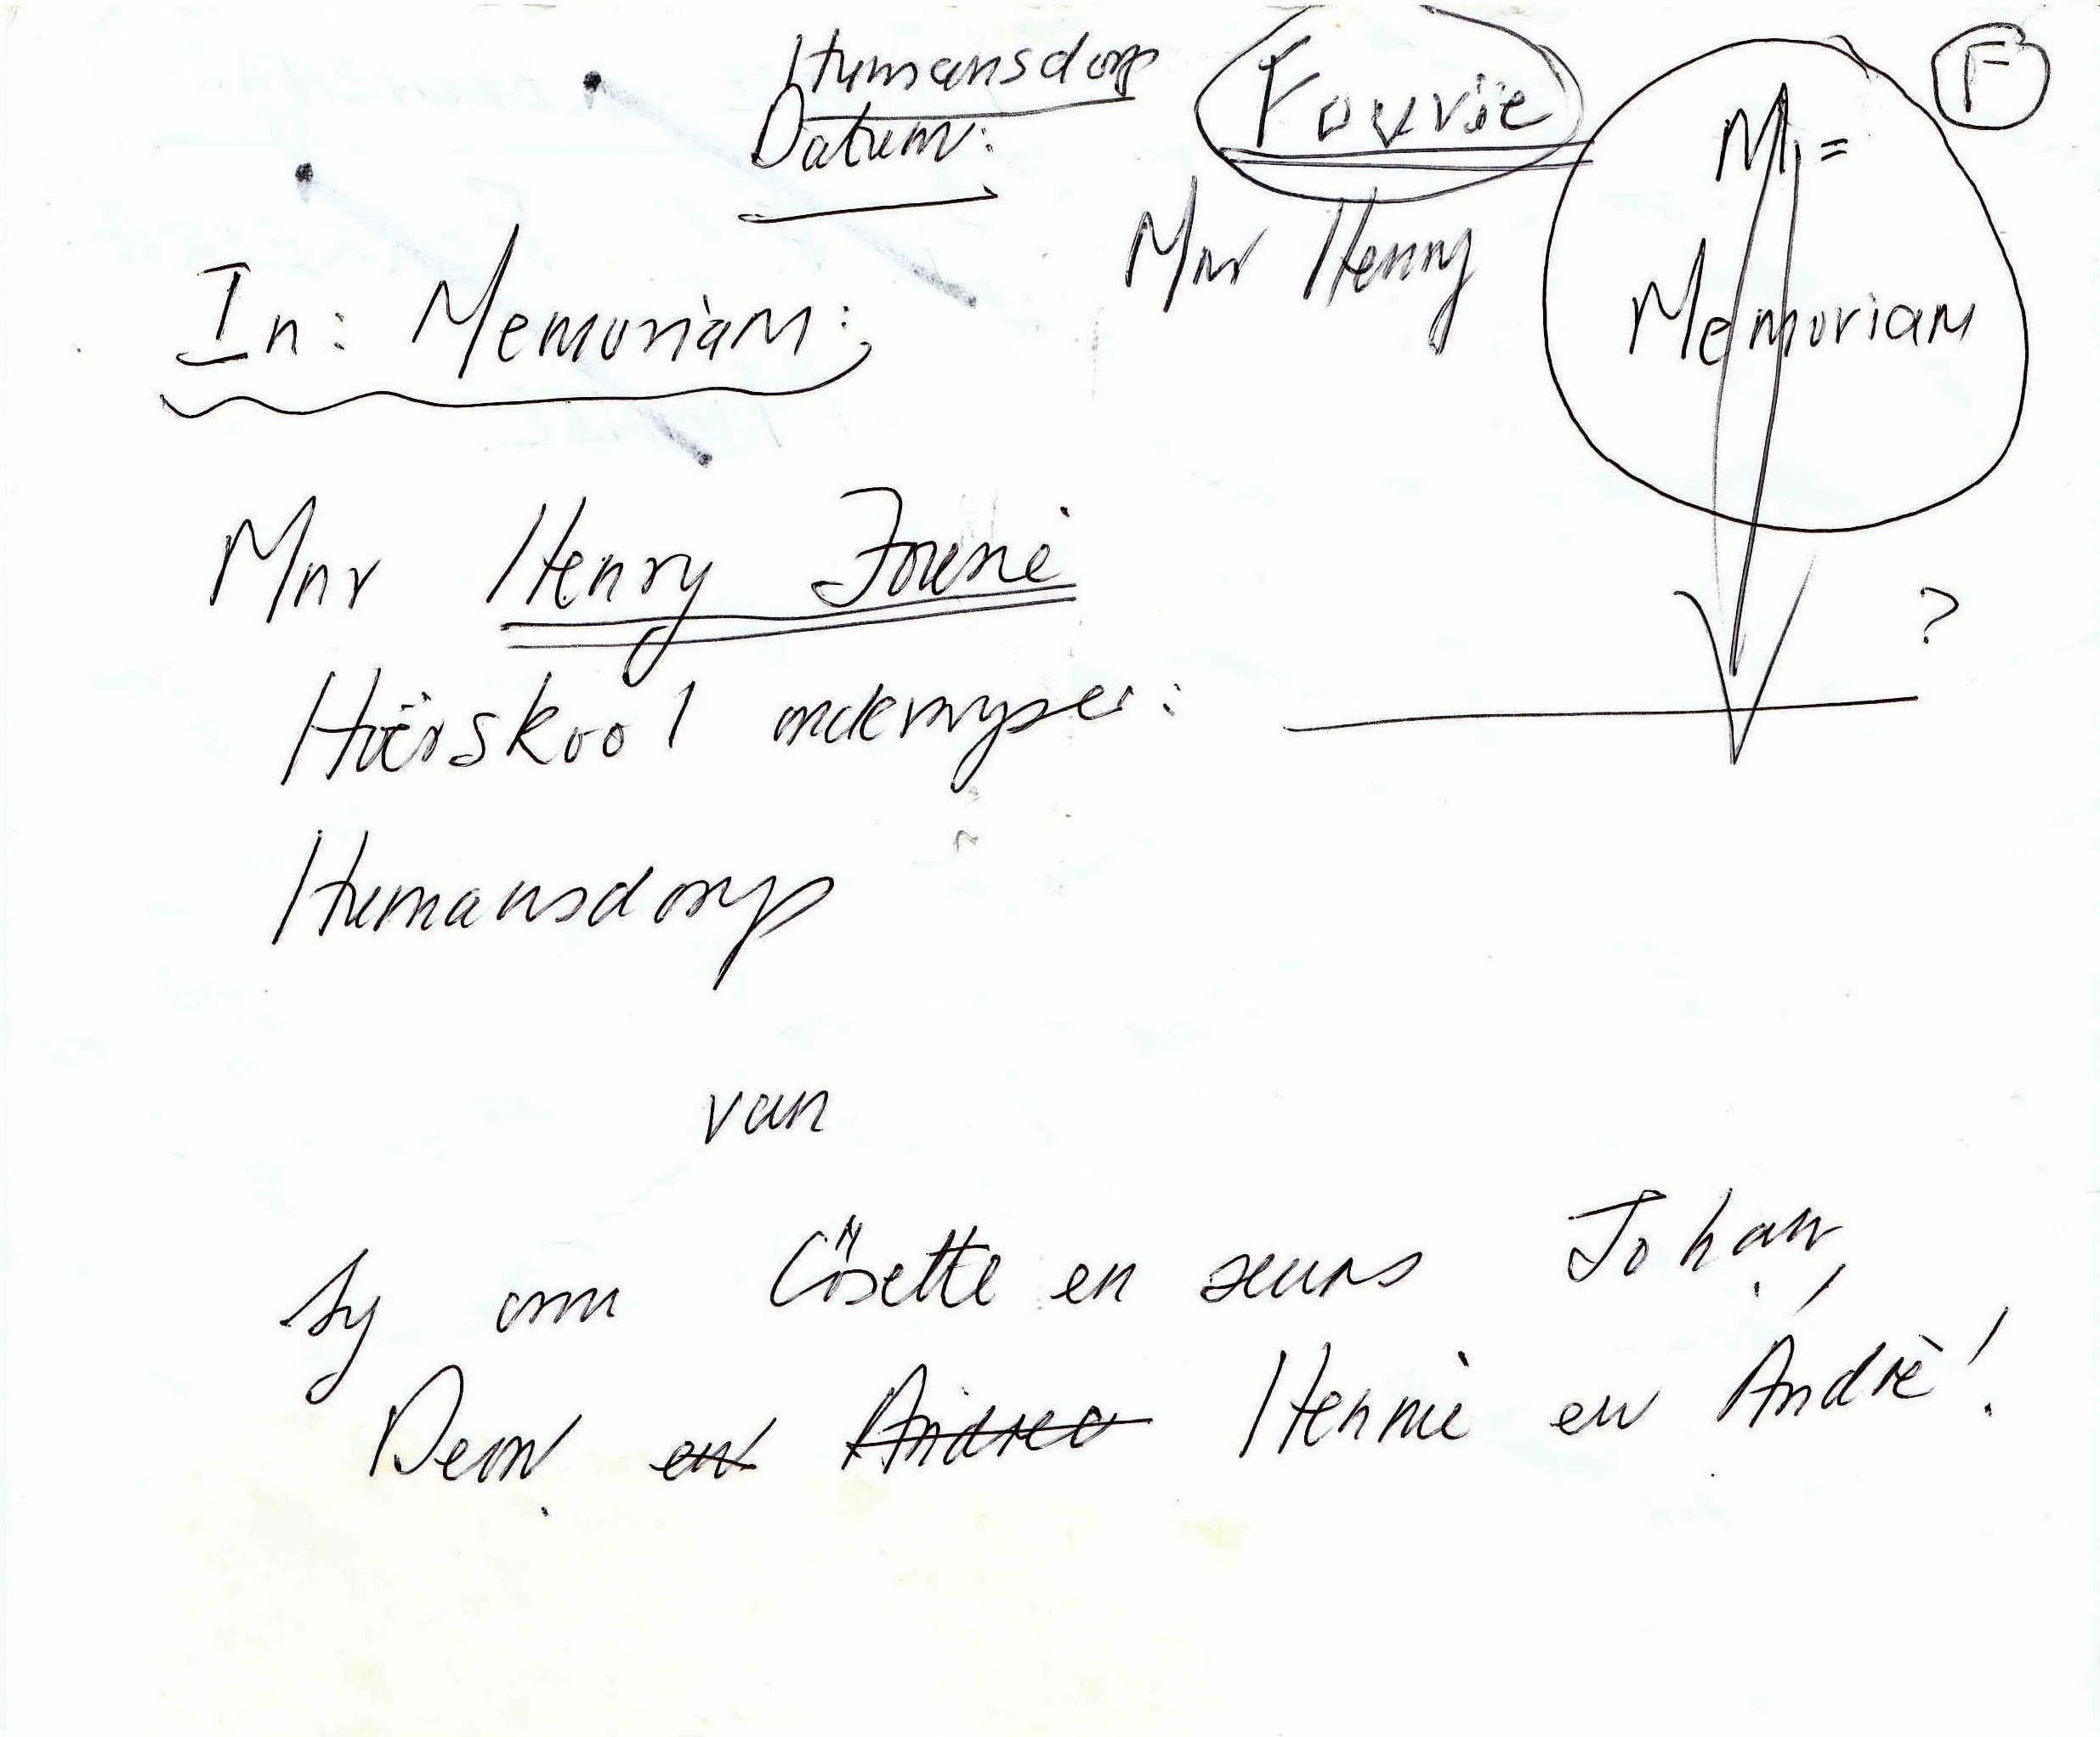 Humansdorp
Datum:
Fourië
Mnr Henry
F
M =
Memoriam
In: Memoriam:
Mnr Henry Fourie
Hoërskool onderwyser: ?
Humansdorp
van
sy ... Cösette en seuns Johan,
Deon en Andreo Hennie en Andrè!